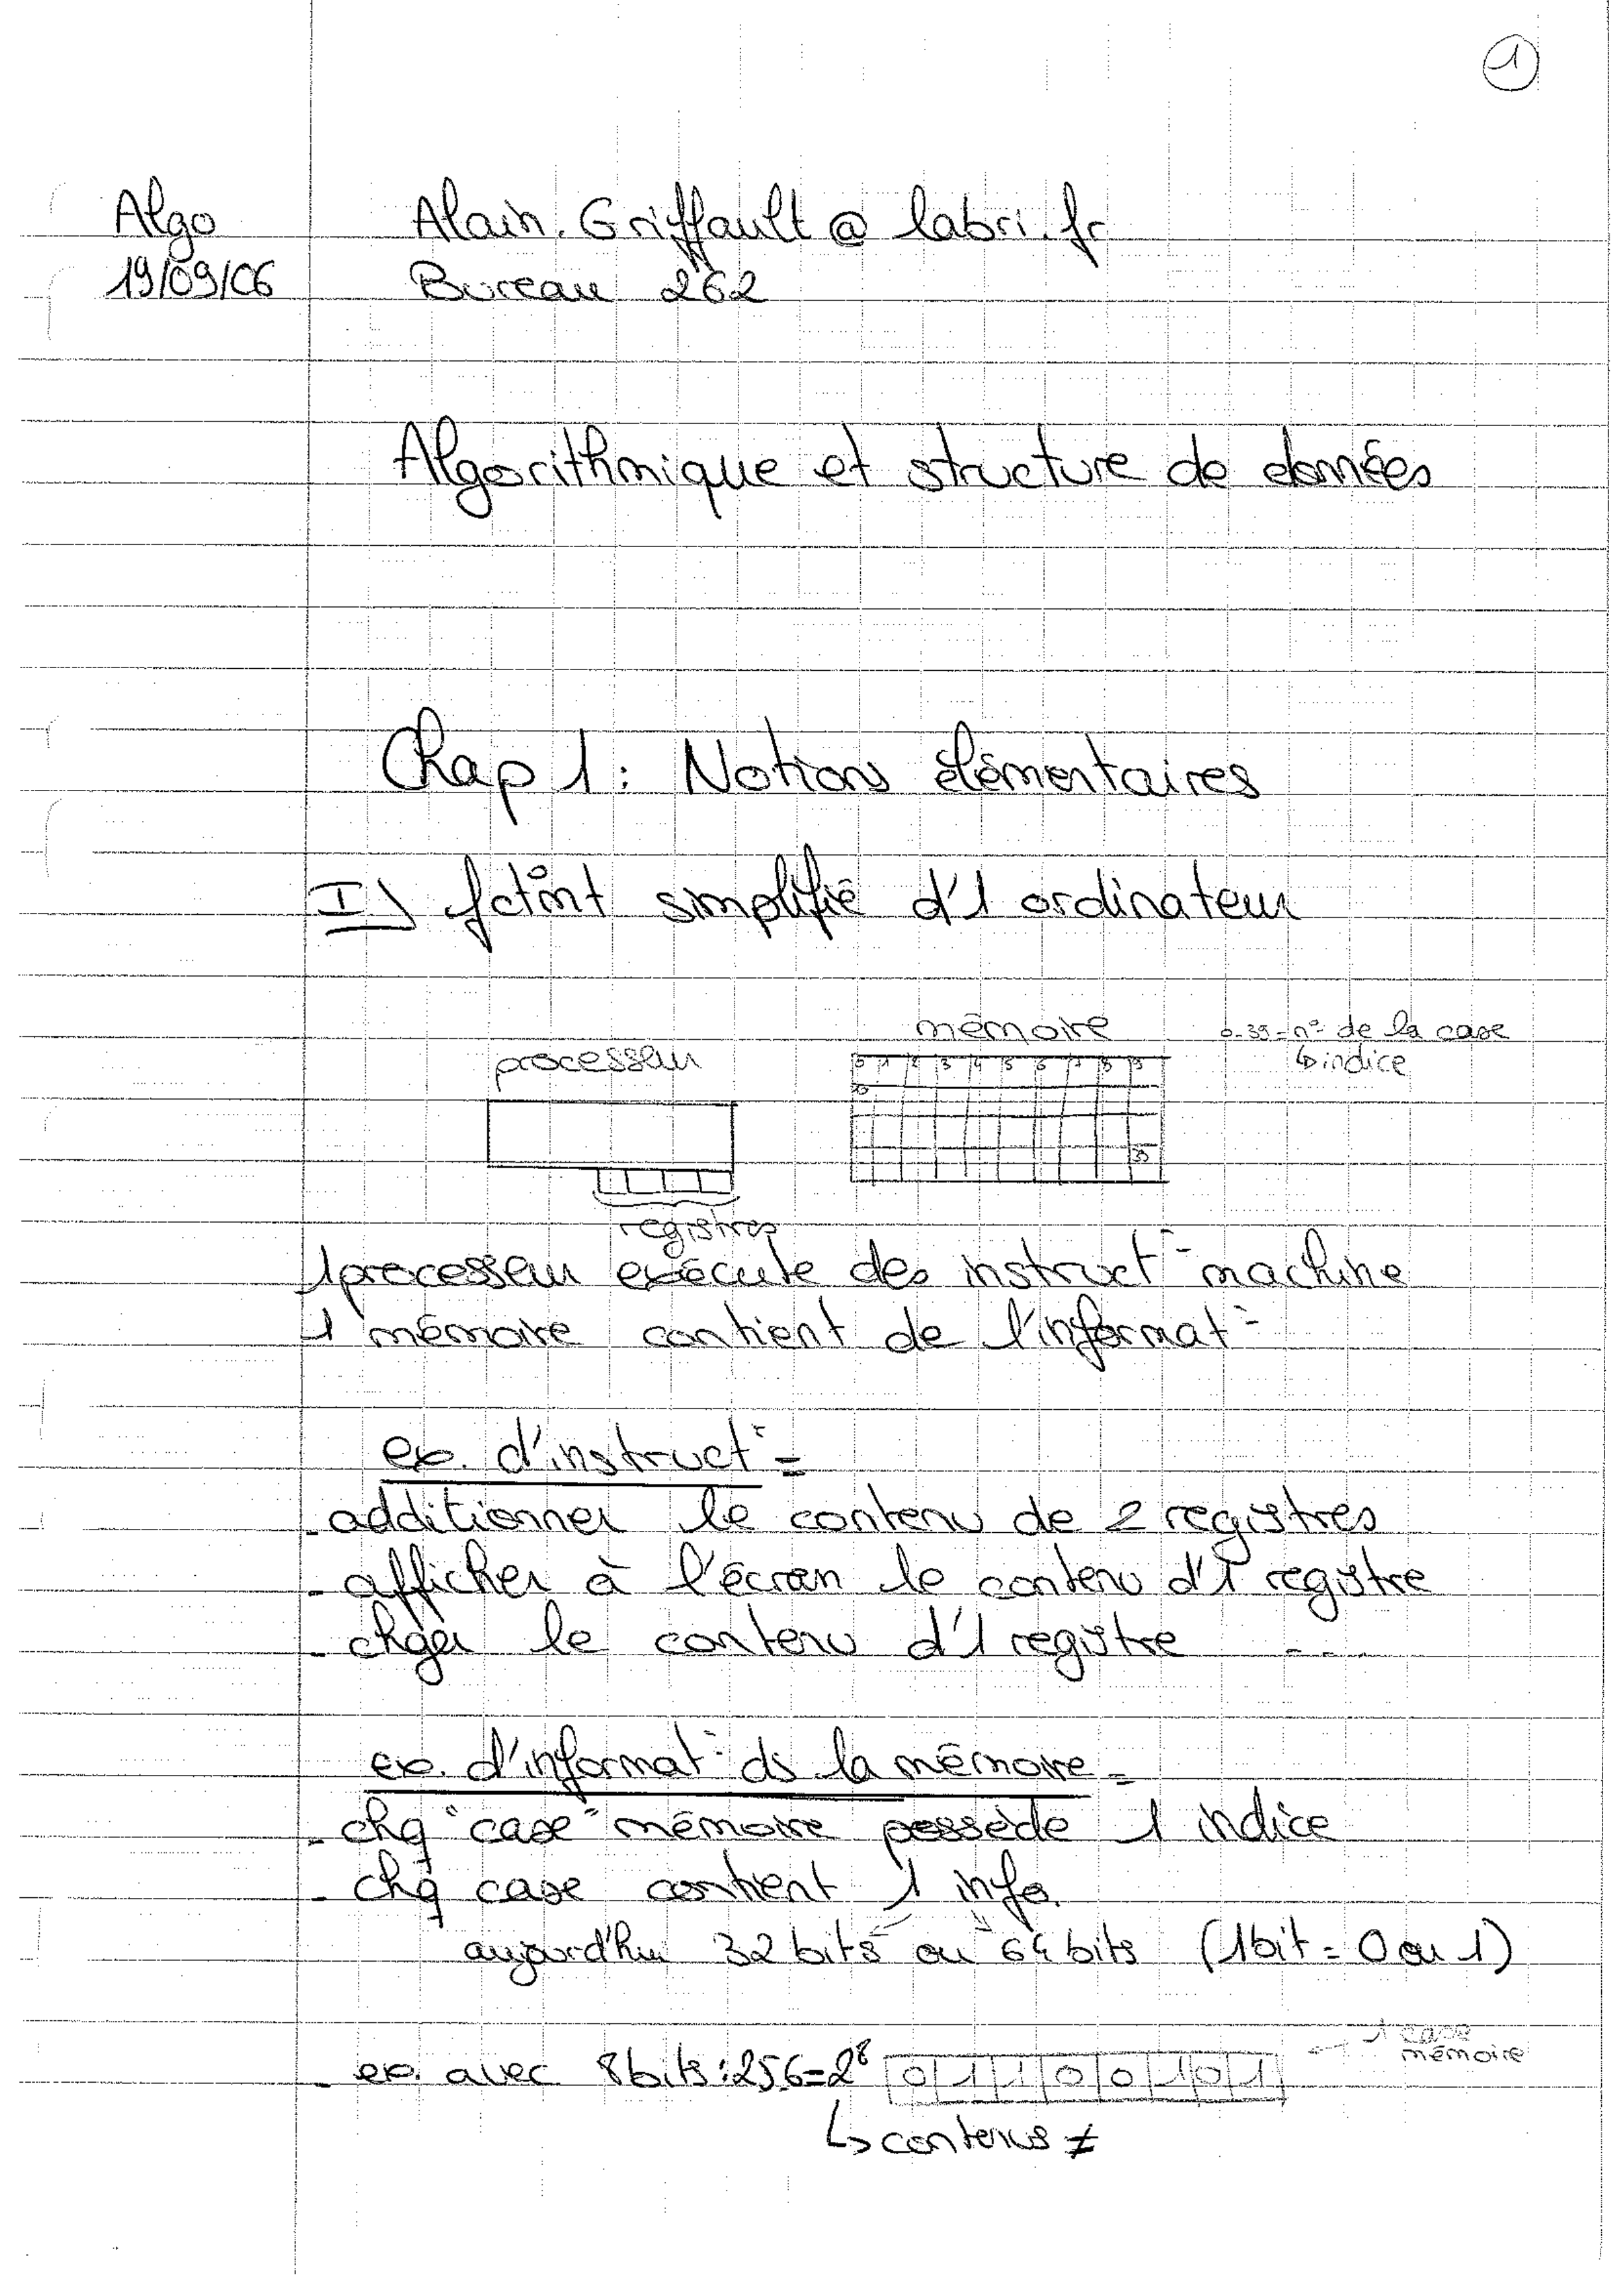 1
Algo Alain.Griffault@labri.fr
19/09/06 Bureau 262
Algorithmique et structure de données
Chap 1: Notions élémentaires
I) fctmt simplifié d'1 ordinateur
mémoire 0-39=n° de la case
processeur ↳indice
0 1 2 3 4 5 6 7 8 9
10
39
registres
1 processeur exécute des instruct° machine
1 mémoire contient de l'informat°
ex. d'instruct° =
- additionner le contenu de 2 registres
- afficher à l'écran le contenu d'1 registre
- chger le contenu d'1 registre ...
ex. d'informat° ds la mémoire =
- chq "case" mémoire possède 1 indice
- chq case contient 1 info.
aujourd'hui 32 bits ou 64 bits (1bit = 0 ou 1)
1 case
mémoire
- ex. avec 8bits:256=2⁸ 0 1 1 0 0 1 0 1
↳ contenus ≠